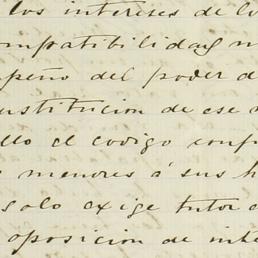 los intereses de lo
ompatibilidad y n
peño del poder d
stitucion de ese
llo el codigo conf
menores á sus h
solo exige tutor
oposicion de inte